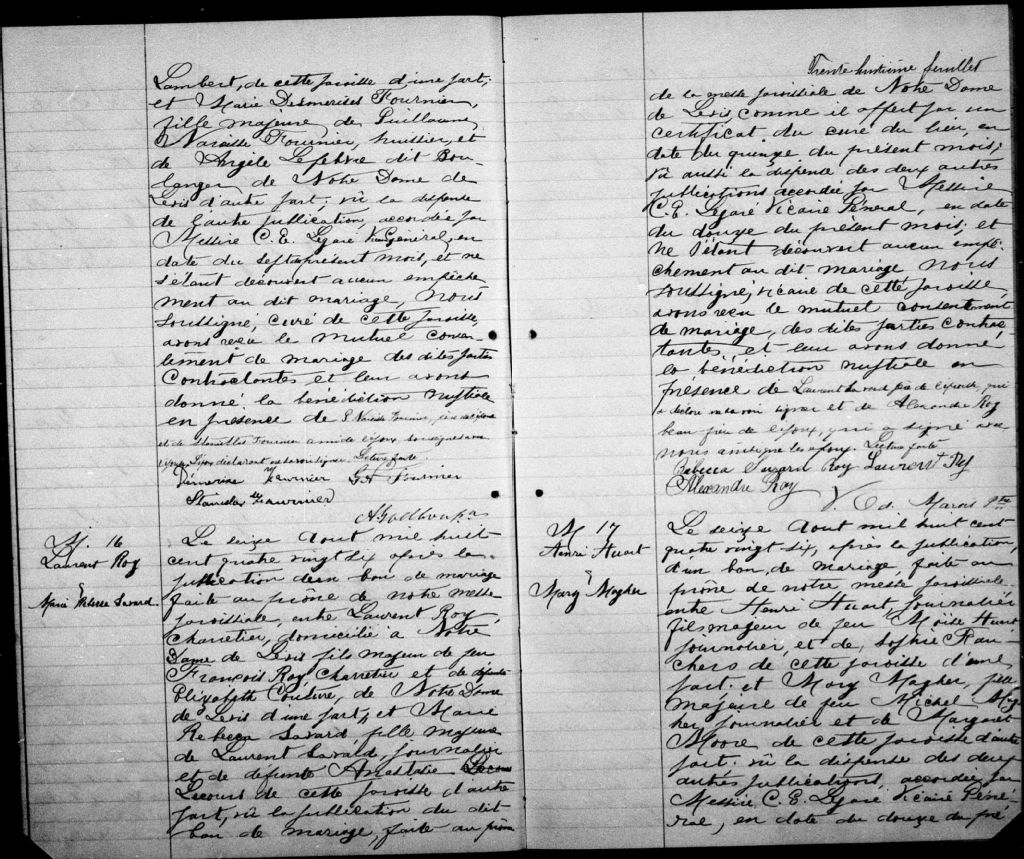 Lambert, de cette paroisse d'une part;
et Marie Desmerises Fournier,
fille majeure de Guillaume
Narcisse Fournier, huissier, et
de Angèle Lefebvre dit Bou-
langer de Notre Dame de
Levis d'autre part; vû la dispense
de l'autre publication, accordée par
Messire C. E. Legaré Vic. Général, en
date du sept présent mois, et ne
s'étant découvert aucun empêche
ment au dit mariage, Nous
soussigné, curé de cette paroisse,
avons reçu le mutuel consen-
tement de mariage des dites parties
contractantes et leur avons
donné la bénédiction nuptiale
en présence de G. Narcisse Fournier, père de l'épouse
et de Stanislas Fournier ami de l'époux soussignés avec
l'épouse. L'époux déclarant ne savoir signer. Lecture faite
Fournier G. N. Fournier
Stanislas Fournier
M. 16
Laurent Roy
&
Marie Rebecca Savard.
Le seize Aout mil huit
cent quatre vingt six après la
publication d'un ban de mariage
faite au prône de notre messe
paroissiale, entre Laurent Roy,
charretier, domicilié à Notre
Dame de Levis fils majeur de feu
François Roy charretier et de défunte
Elizabeth Couture, de Notre Dame
de Levis d'une part, et Marie
Rebecca Savard, fille majeure
de Laurent Savard, journalier
et de défunte Anastasie
Lecours de cette paroisse d'autre
part, vû la publication du dit
ban de mariage, faite au prône
Trente huitième feuillet
de la messe paroissiale de Notre Dame
de Levis comme il appert par un
certificat du curé du lieu, en
date du quinze du présent mois;
vû aussi la dispense des deux autres
publications accordée par Messire
C. E. Legaré Vicaire Général, en date
du douze du présent mois; et
ne s'étant découvert aucun empê-
chement au dit mariage nous
soussigné, vicaire de cette paroisse,
avons reçu le mutuel consentement
de mariage, des dites parties contrac-
tantes, et leur avons donné
la bénédiction nuptiale en
présence de Laurent Savard père de l'épouse, qui
a déclaré ne savoir signer et de Alexandre Roy
beau frère de l'époux, qui a signé avec
nous ainsi que les époux. Lecture faite
Rébecca Savard Roy Laurent Roy
Alexandre Roy
V. Od. Marois Ptre
M 17
Henri Huart
&
Mary Magher
Le seize Aout mil huit cent
quatre vingt six, après la publication,
d'un ban, de mariage, faite au
prône de notre messe paroissiale
entre Henri Huart, journalier
fils majeur de feu Moïse Huart
journalier, et de, Sophie Rau-
chers de cette paroisse d'une
part. et Mary Magher, fille
majeure de feu Michel Mag
her, journalier et de Margaret
Moore de cette paroisse d'autre
part. vû la dispense des deux
autres publications, accordée par
Messire C. E. Legaré Vicaire Géné-
ral, en date du douze du pré